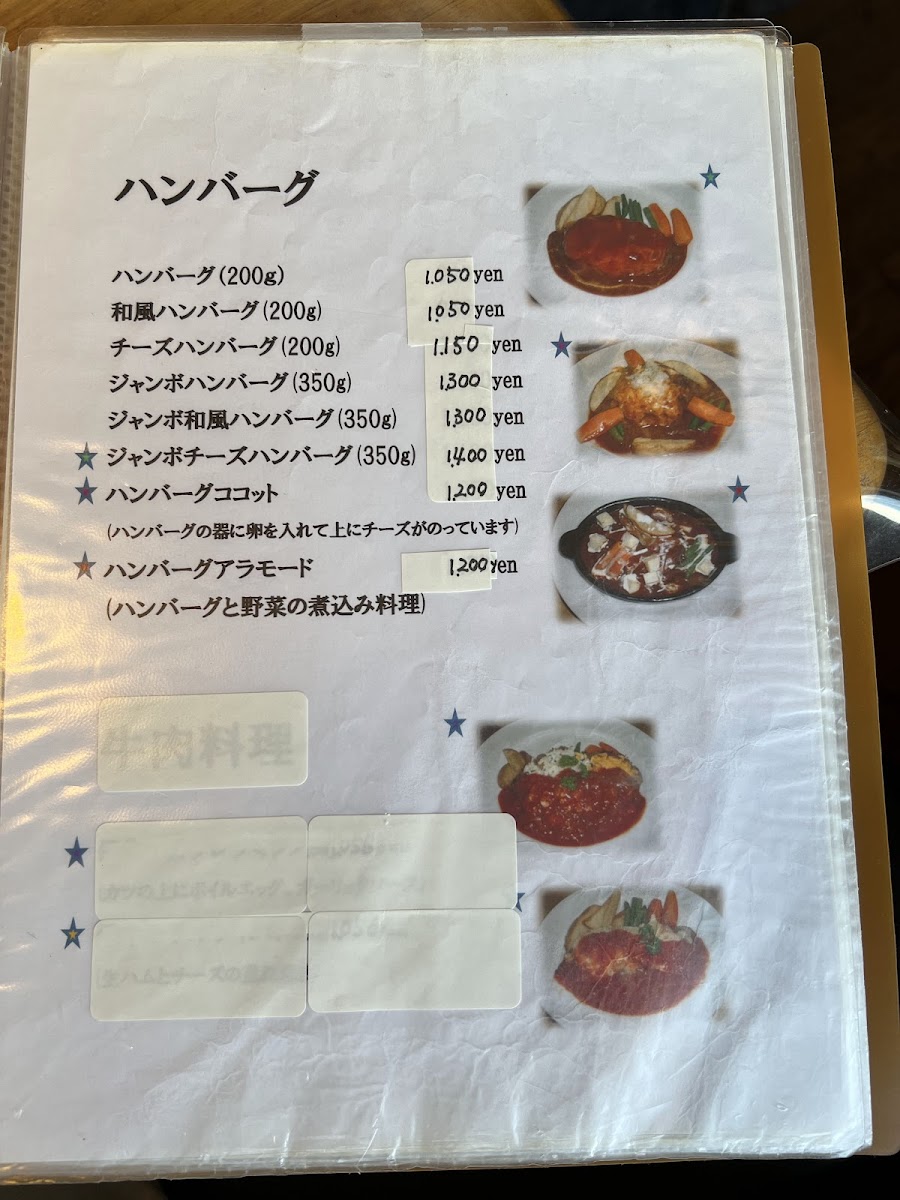 ハンバーグ
ハンバーグ(200g) 1.050yen
和風ハンバーグ(200g) 1.050yen
チーズハンバーグ(200g) 1.150yen
ジャンボハンバーグ(350g) 1.300yen
ジャンボ和風ハンバーグ(350g) 1.300yen
ジャンボチーズハンバーグ(350g) 1.400yen
ハンバーグココット 1.200yen
(ハンバーグの器に卵を入れて上にチーズがのっています)
ハンバーグアラモード 1.200yen
(ハンバーグと野菜の煮込み料理)
牛肉料理
カツの上にボイルエッグ、
生ハムとチーズの